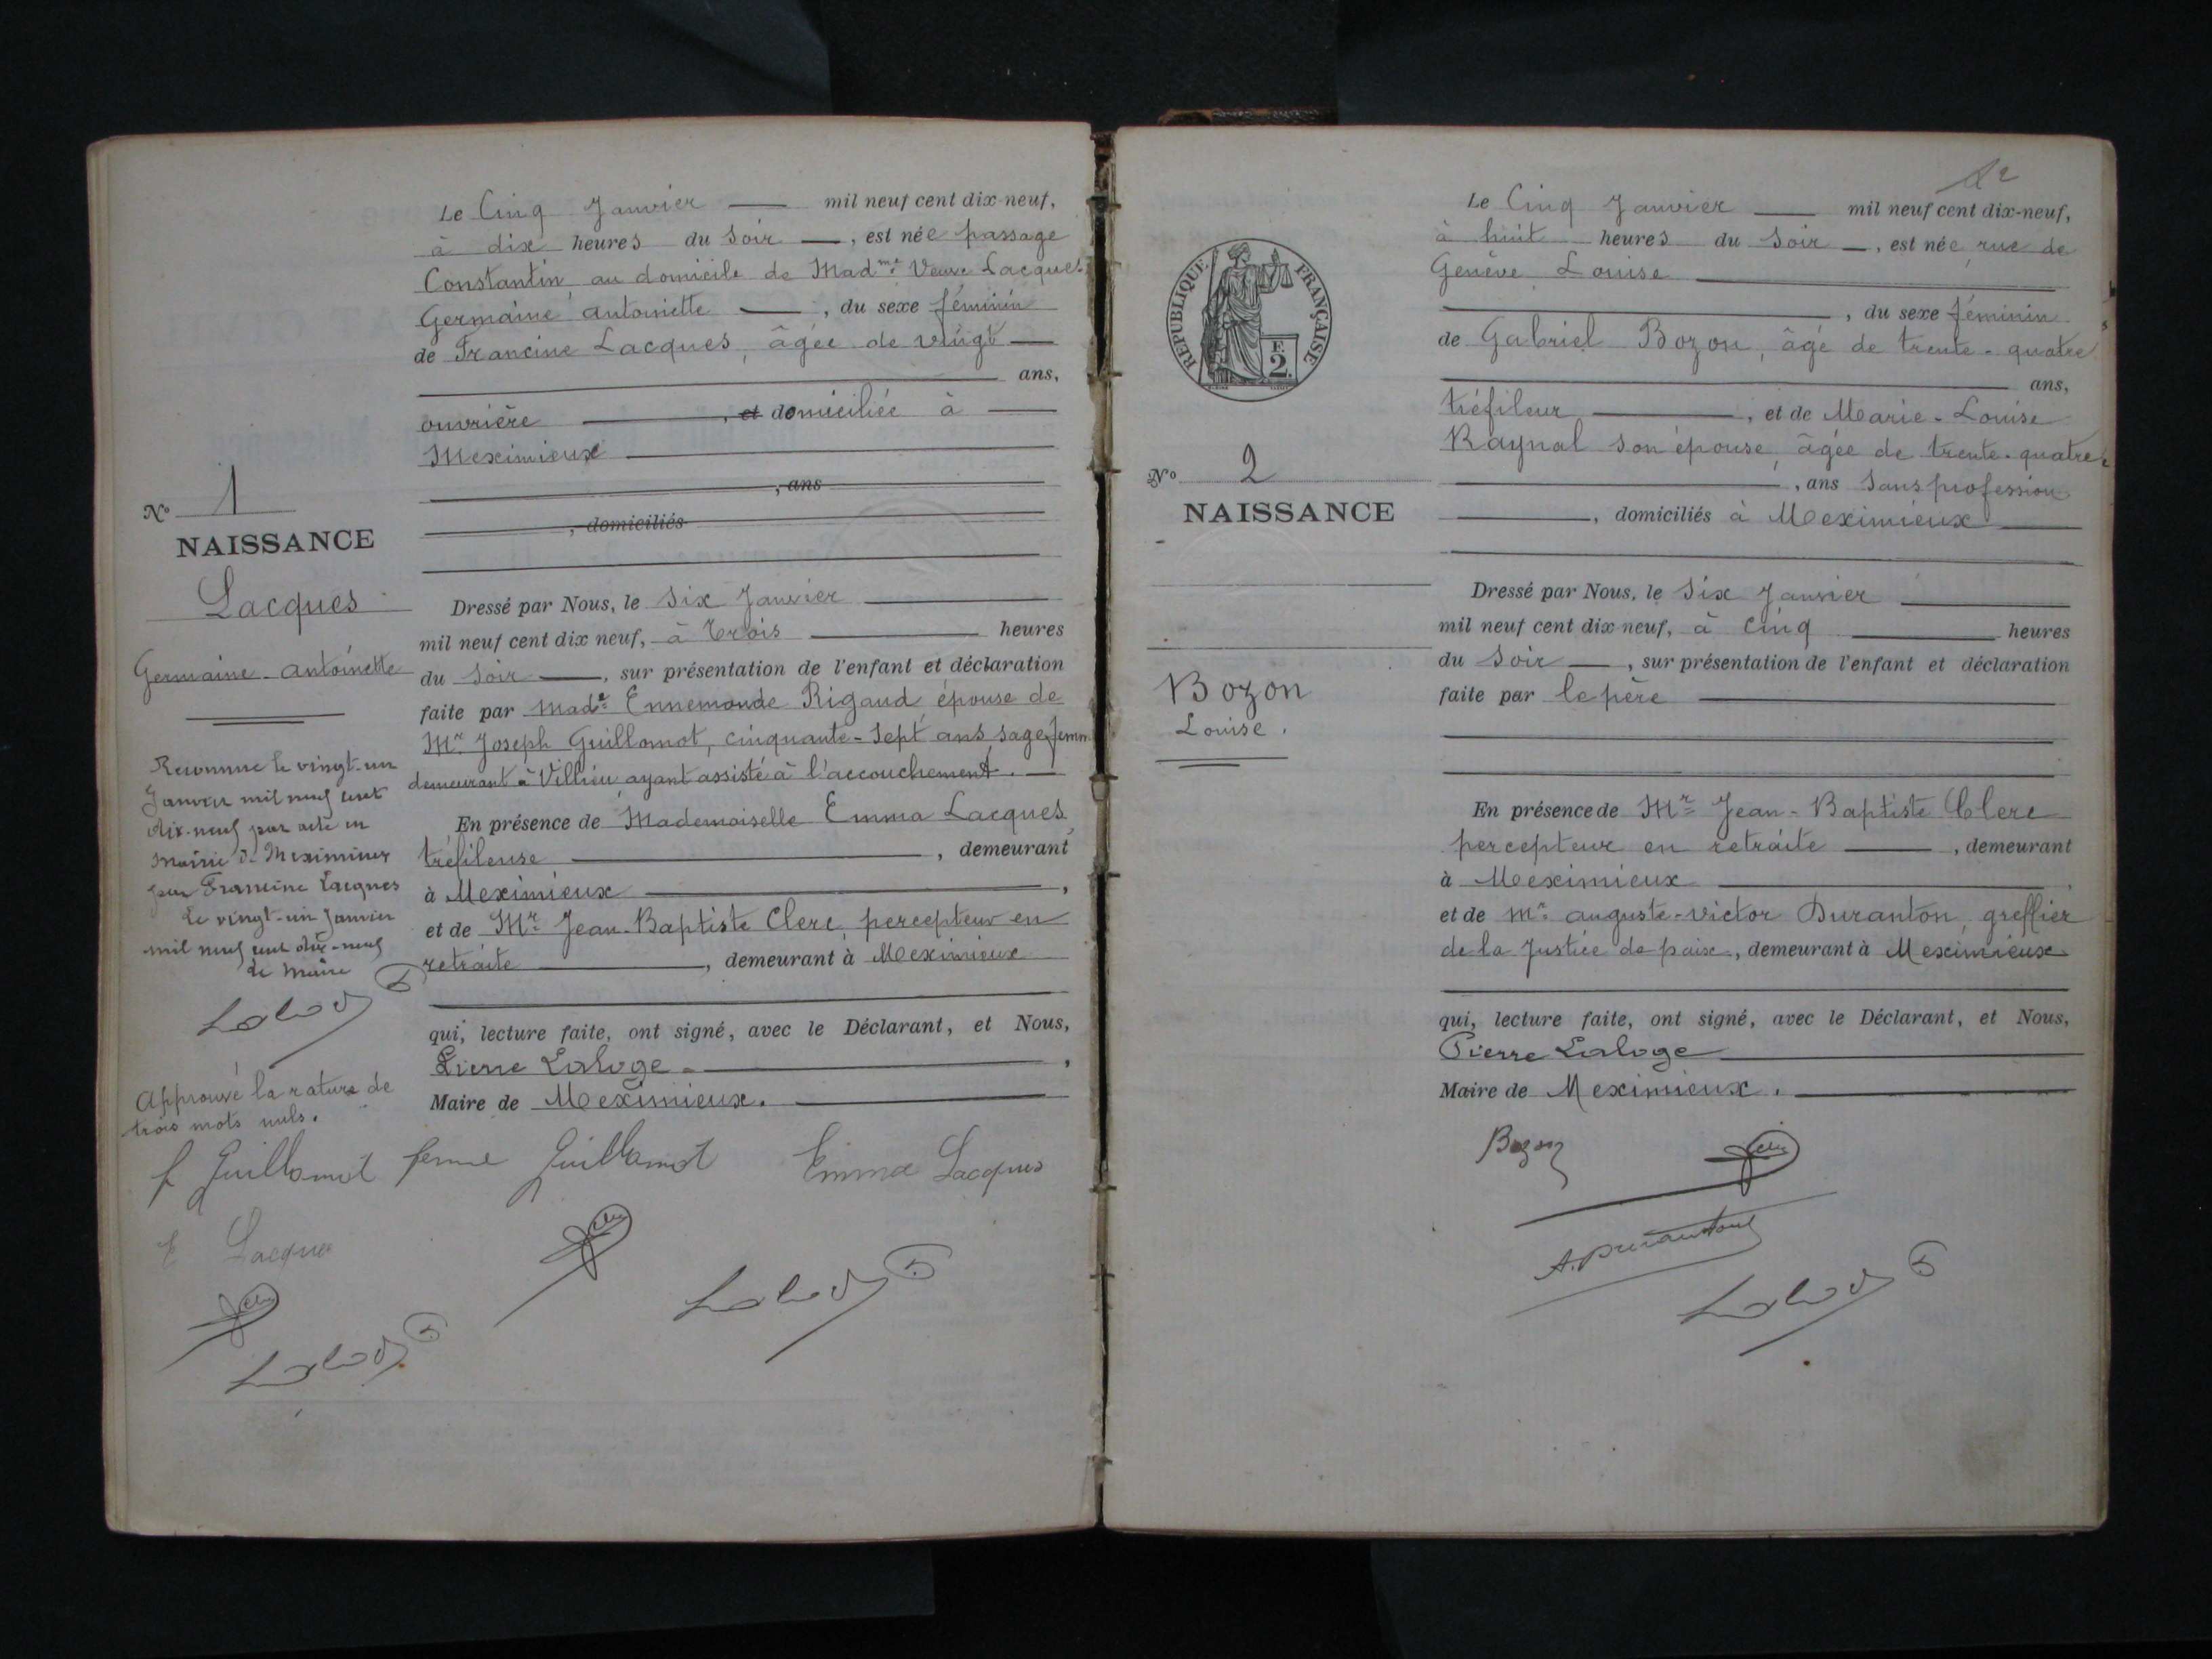 Le Cinq Janvier mil neuf cent dix-neuf,
à dix heures du soir, est née passage
Constantin, au domicile de Mad.me Veuve Lacques
Germaine Antoinette, du sexe féminin
de Francine Lacques, âgée de vingt
ans,
ouvrière, et domiciliée à
Meximieux
, ans
, domiciliés
N° 1
NAISSANCE
Lacques
Germaine Antoinette
Dressé par Nous, le Six Janvier
mil neuf cent dix neuf, à trois heures
du soir, sur présentation de l'enfant et déclaration
faite par Made Ennemonde Rigaud, épouse de
Mr. Joseph Guillomot, cinquante-sept ans, sage femm
demeurant à Villieu, ayant assisté à l'accouchement.
En présence de Mademoiselle Emma Lacques,
tréfileuse, demeurant
à Meximieux,
et de Mr. Jean-Baptiste Clerc, percepteur en
retraite, demeurant à Meximieux
qui, lecture faite, ont signé, avec le Déclarant, et Nous,
Pierre Laloge,
Maire de Meximieux.
Reconnue le vingt-un
Janvier mil neuf cent
dix-neuf par acte en
Mairie de Meximieux
par Francine Lacques
Le vingt-un Janvier
mil neuf cent dix-neuf
Le Maire
Approuvé la rature de
trois mots nuls.
f Guillomot femme Guillomot Emma Lacques
E Lacques
Le Cinq Janvier mil neuf cent dix-neuf,
à huit heures du soir, est née, rue de
Genève, Louise
, du sexe féminin
de Gabriel Bozon, âgé de trente-quatre
ans,
tréfileur, et de Marie-Louise
Raynal son épouse, âgée de trente-quatre
, ans sans profession
, domiciliés à Meximieux
REPUBLIQUE FRANÇAISE
F.
2.
N° 2
NAISSANCE
Bozon
Louise.
Dressé par Nous, le Six Janvier
mil neuf cent dix neuf, à cinq heures
du soir, sur présentation de l'enfant et déclaration
faite par le père
En présence de Mr. Jean-Baptiste Clerc
percepteur en retraite, demeurant
à Meximieux
et de Mr. Auguste-Victor Duranton, greffier
de la Justice de paix, demeurant à Meximieux
qui, lecture faite, ont signé, avec le Déclarant, et Nous,
Pierre Laloge
Maire de Meximieux.
Bozon
A. Duranton